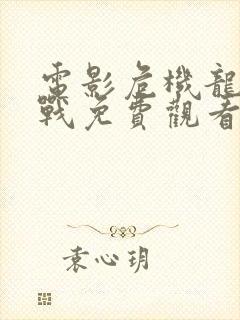 電影危機龍
戰免費觀看
袁心玥